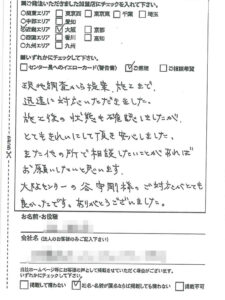 ●発注いただきました加盟店にチェックを入れて下さい。
◎関東エリア □東京西 □東京東 □千葉 □埼玉
◎中部エリア □愛知
◎近畿エリア ☑大阪 □京都
◎四国エリア □香川 □高知
◎九州エリア □九州
■いずれかにチェックして下さい。
□センター長へのイエローカード(警告書) ☑ご感想 □ご指摘希望
現地調査から提案、施工まで、
迅速に対応いただきました。
施工後の状態も確認しましたが、
とてもきれいにして頂き安心しました。
また他の所で相談したいことがあれば
お願いしたいと思います。
大阪センターの谷 剛様のご対応がとても
良かったです。ありがとうございました。
お名前・お役職
会社名 (法人のお客様のみご記入下さい)
当社ホームページ等にお客様の声として掲載させていただく場合がございます。
いずれかにチェックしてください。
□掲載して構わない ☑社名・名前が匿名ならば掲載しても構わない □掲載不可